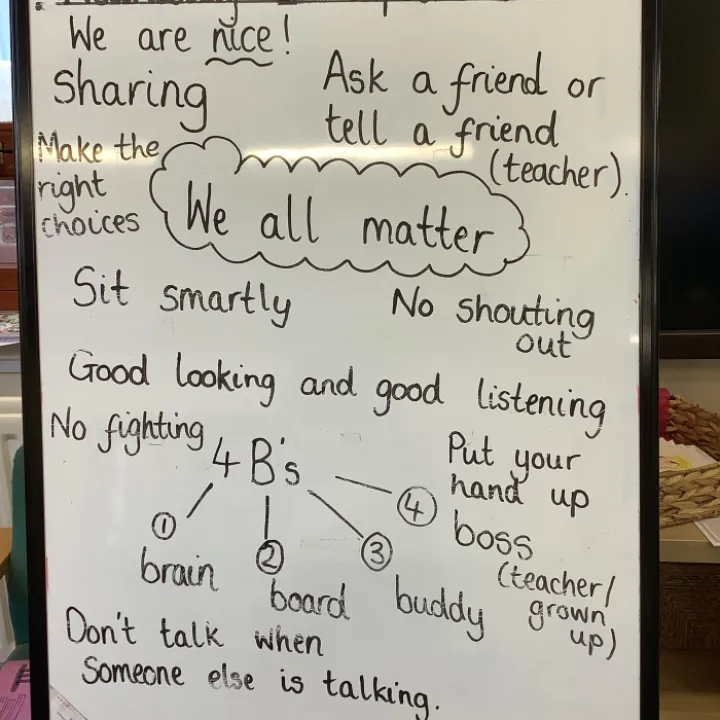 We are nice!
Sharing
Ask a friend or
tell a friend
(teacher).
Make the
right
choices
We all matter
Sit smartly
No shouting
out
Good looking and good listening
No fighting
4 B's
Put your
hand up
1 brain
2 board
3 buddy
4 boss
(teacher/
grown
up)
Don't talk when
someone else is talking.